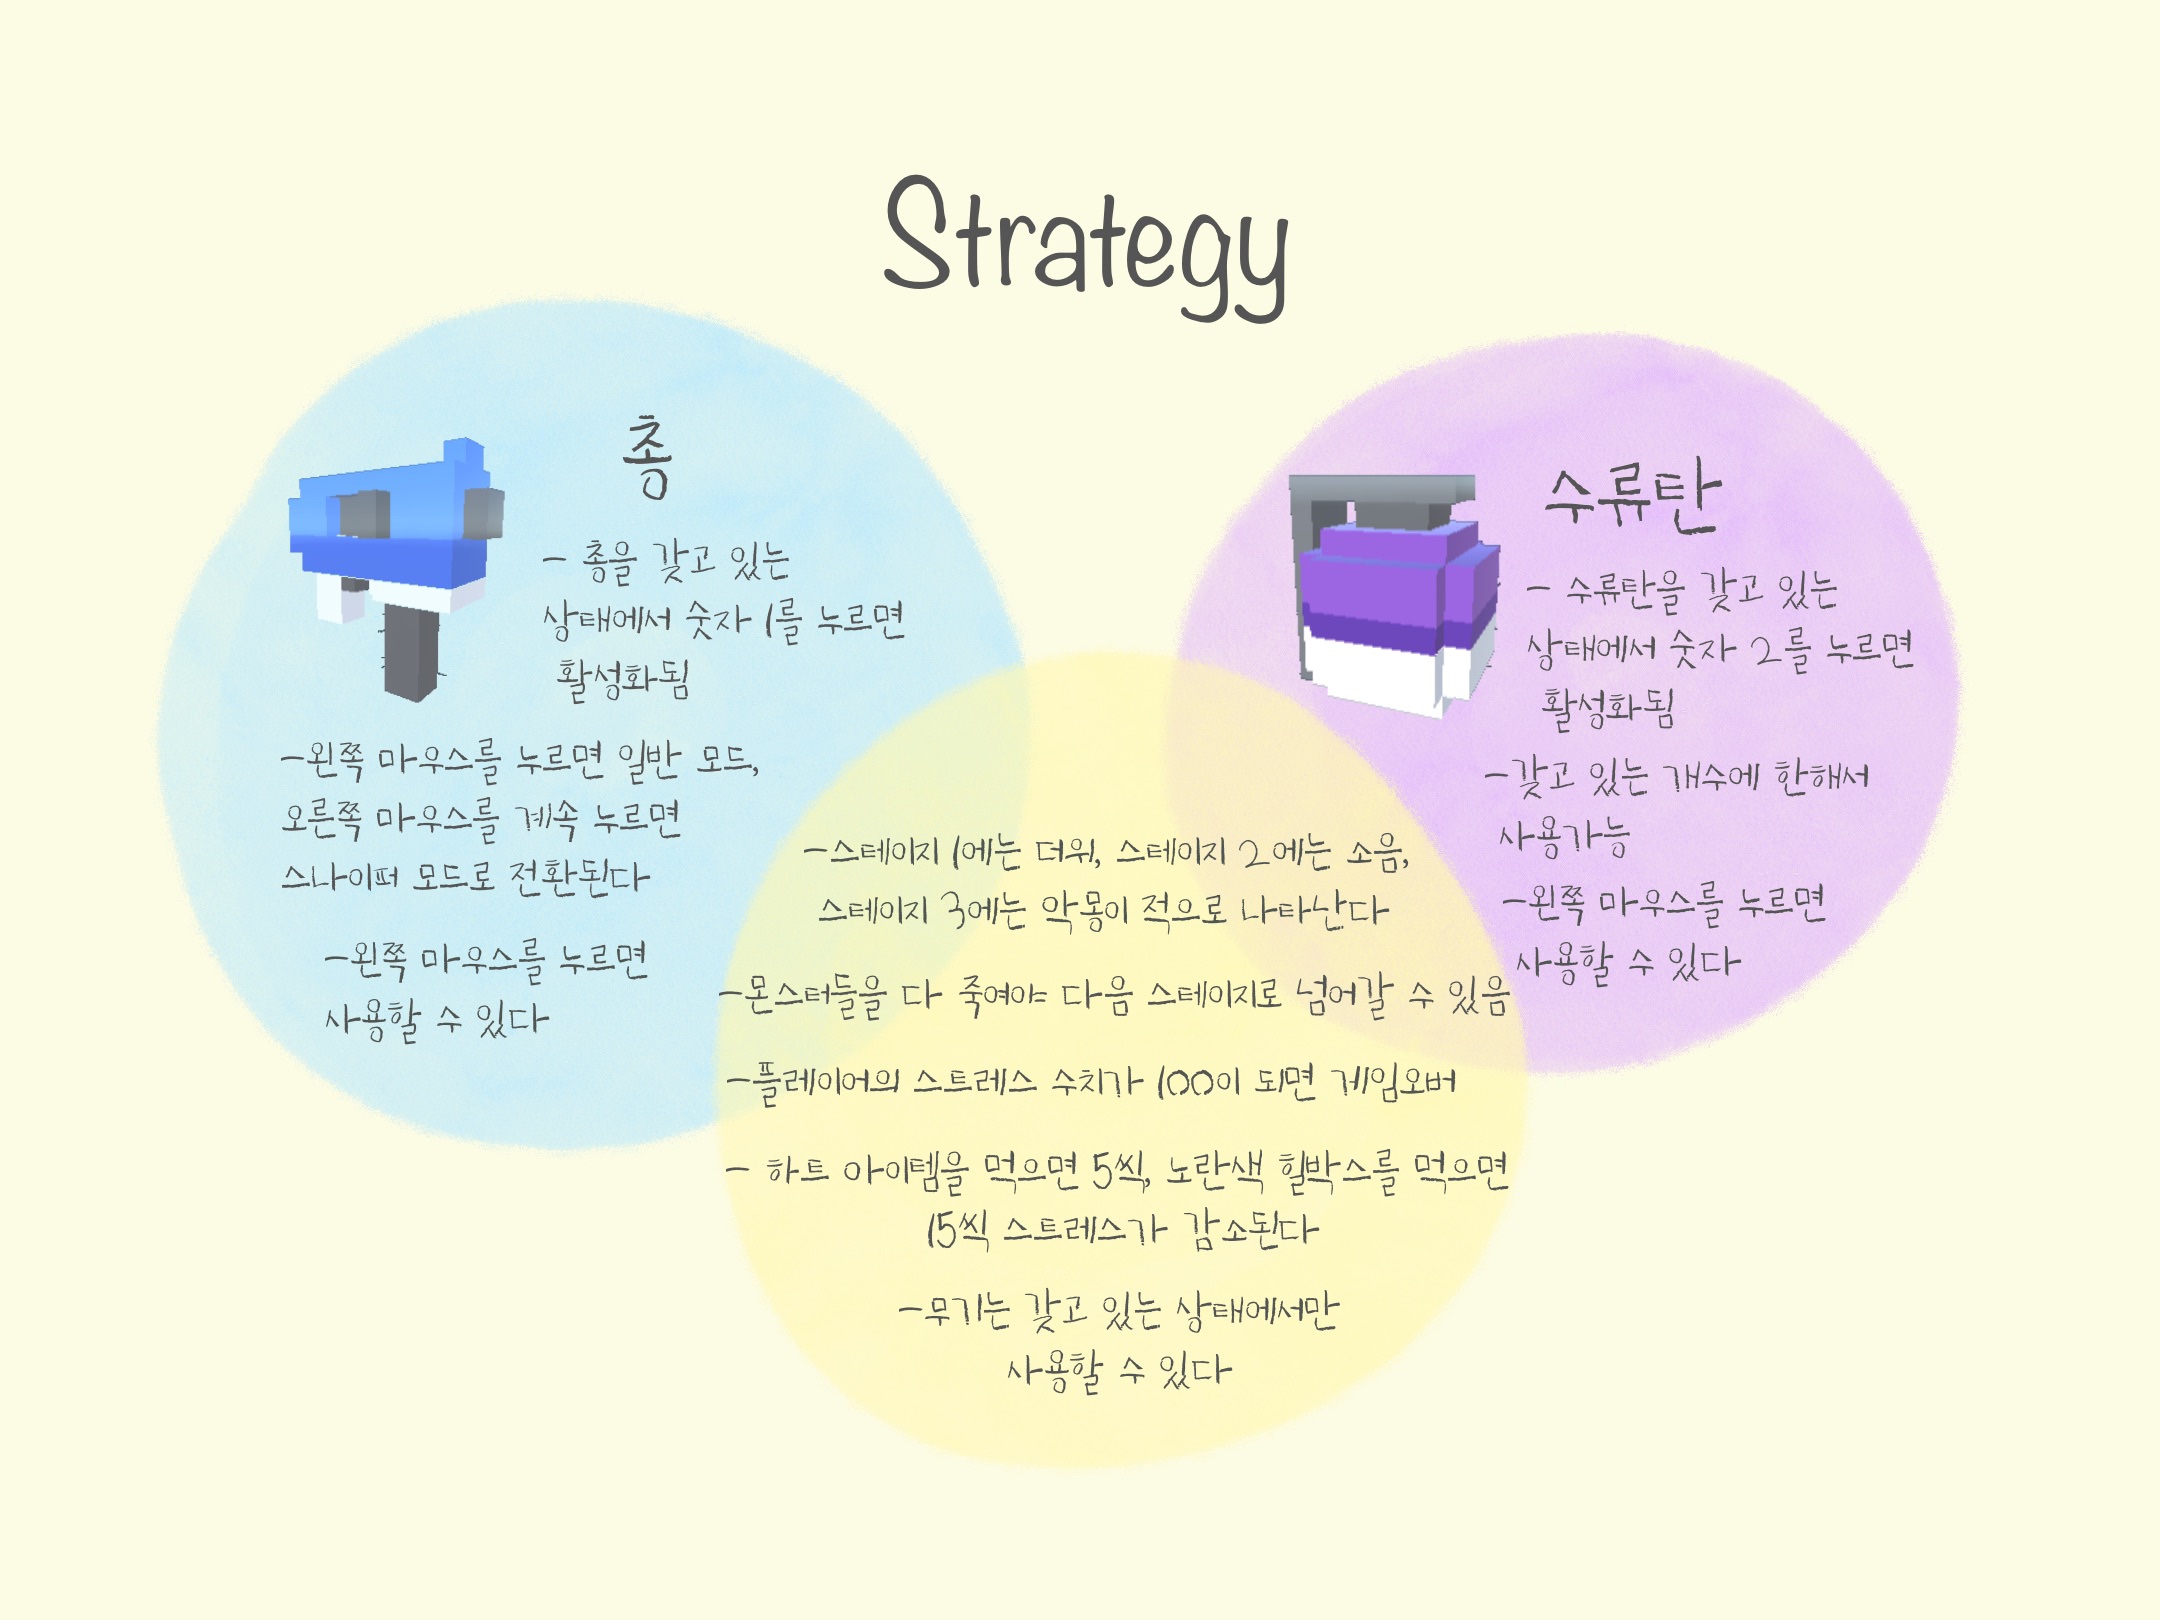 Strategy
총
- 총을 갖고 있는
상태에서 숫자 1를 누르면
활성화됨
-왼쪽 마우스를 누르면 일반 모드,
오른쪽 마우스를 계속 누르면
스나이퍼 모드로 전환된다
-왼쪽 마우스를 누르면
사용할 수 있다
수류탄
- 수류탄을 갖고 있는
상태에서 숫자 2를 누르면
활성화됨
-갖고 있는 개수에 한해서
사용가능
-왼쪽 마우스를 누르면
사용할 수 있다
-스테이지 1에는 더위, 스테이지 2에는 소음,
스테이지 3에는 악몽이 적으로 나타난다
-몬스터들을 다 죽여야 다음 스테이지로 넘어갈 수 있음
-플레이어의 스트레스 수치가 100이 되면 게임오버
- 하트 아이템을 먹으면 5씩, 노란색 힐박스를 먹으면
15씩 스트레스가 감소된다
-무기는 갖고 있는 상태에서만
사용할 수 있다